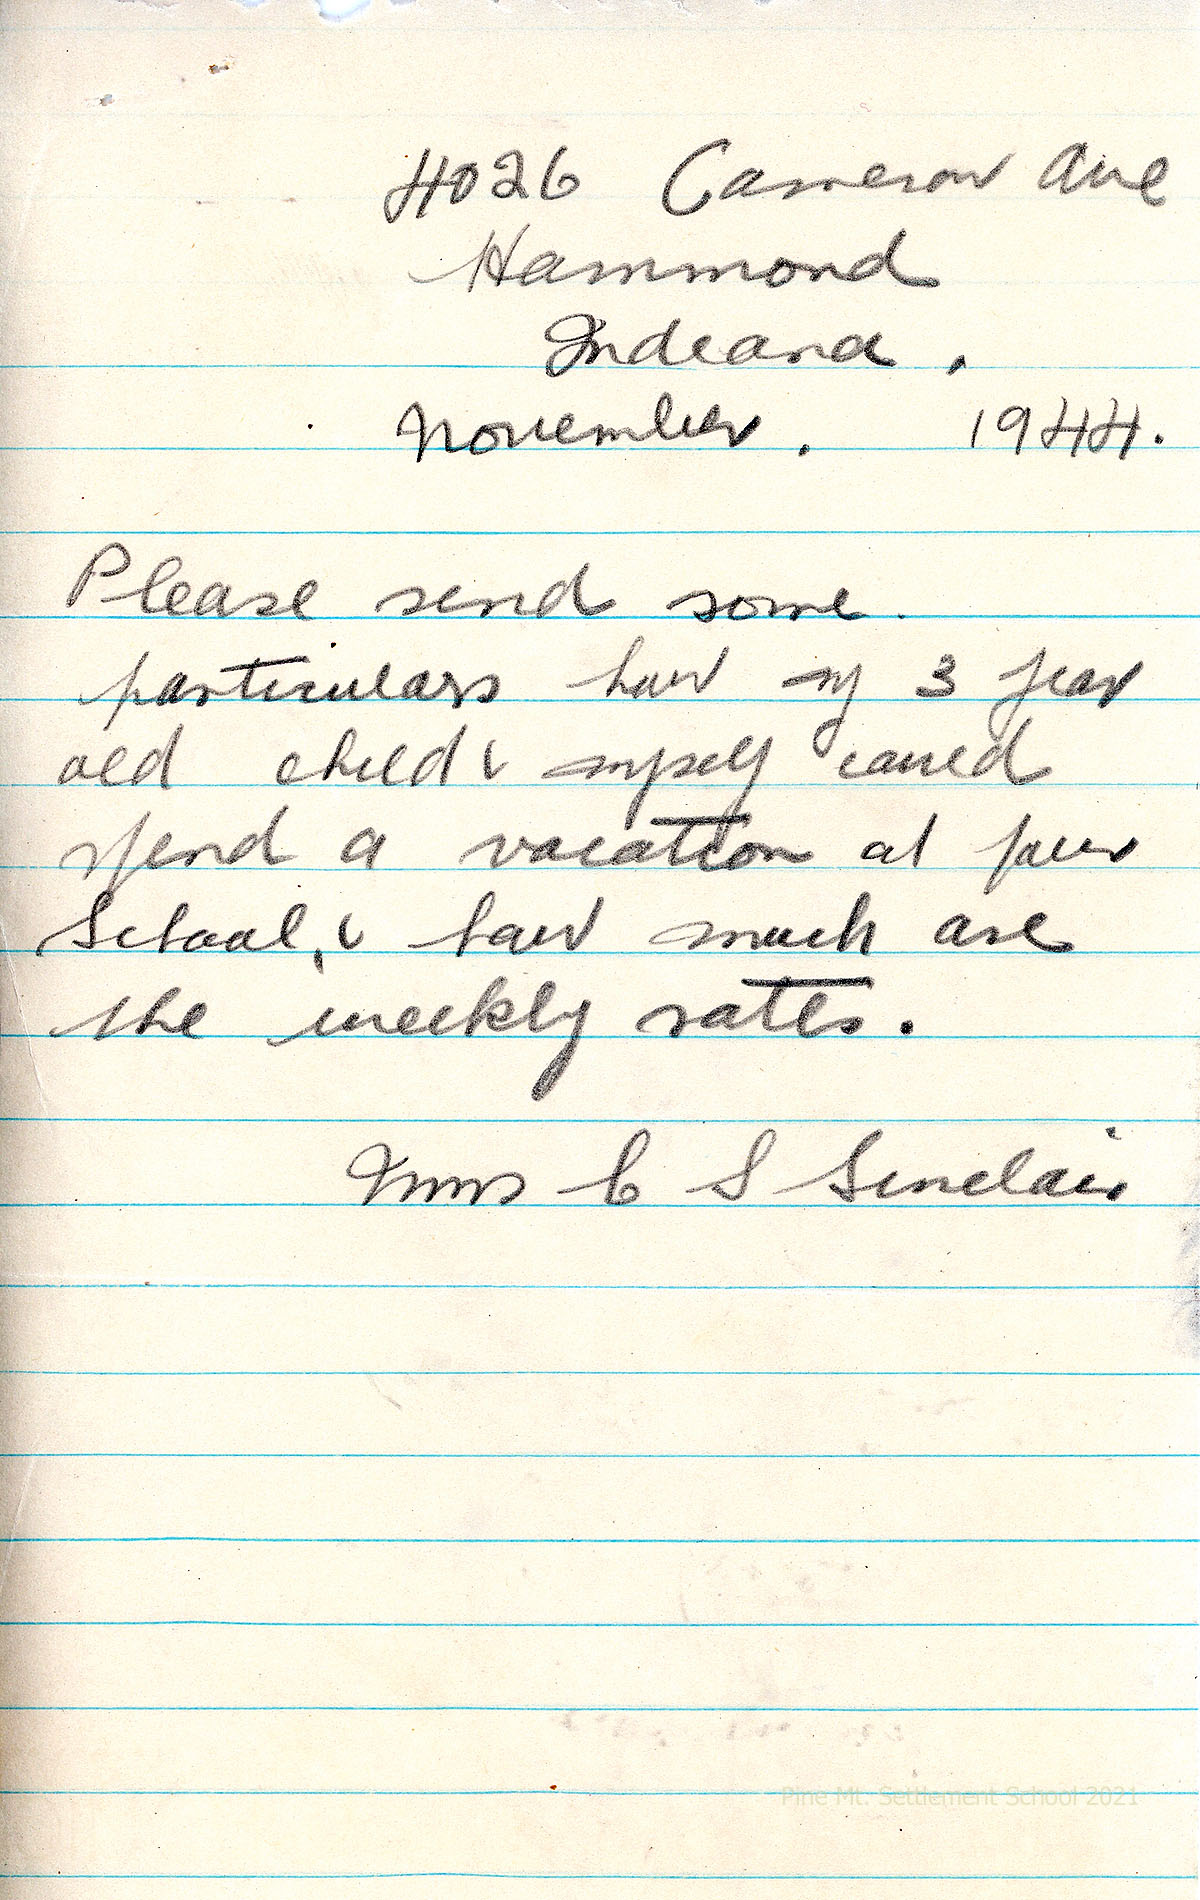 4026 Cameron Ave
Hammond
Indiana.
November. 1944.
Please send some.
particulars how my 3 year
old child & myself could
spend a vacation at your
School, & how much are
the weekly rates.
Mrs C S Sinclair
Pine Mt. Settlement School 2021